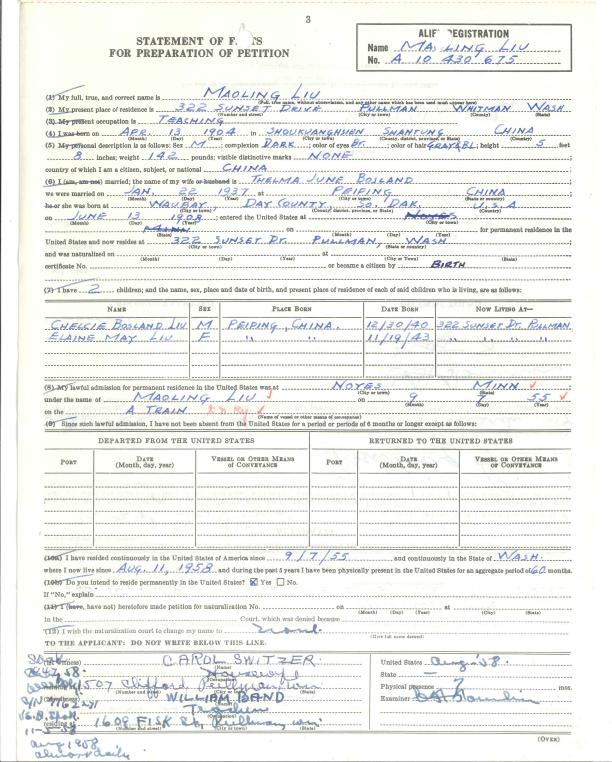 3
STATEMENT OF
FOR PREPARATION OF PETITION
REGISTRATION
Name MAOLING LIU
No. A 10 430 675
(1) My full, true, and correct name is MAOLING LIU
(Full, true name, without abbreviation, and any other name which has been used, must appear here)
(2) My present place of residence is 322 SUNSET DRIVE PULLMAN WHITMAN WASH
(Number and street) (City or town) (County) (State)
(3) My present occupation is TEACHING
(4) I was born on APR. 13 1904 in SHOUKUANGHSIEN SHANTUNG CHINA
(Month) (Day) (Year) (City or town) (County, district, province, or State) (Country)
(5) My personal description is: Sex M; complexion DARK; color of eyes BR.; color of hair GRAY&BL; height 5 feet
8 inches; weight 142 pounds; visible distinctive marks NONE
country of which I am a citizen, subject, or national CHINA
(6) I (am, am not) married; the name of my wife or husband is THELMA JUNE BOSLAND
we were married on JAN. 22 1937 at PEIPING CHINA
(Month) (Day) (Year) (City or town) (State or country)
he or she was born at WAUBAY, DAY COUNTY, SO. DAK. U.S.A
(City or town) (County, district, province, or State) (Country)
on JUNE 13 1908; entered the United States at NOYES
(Month) (Day) (Year) (City or town)
MINN on for permanent residence in the
(State) (Month) (Day) (Year)
United States and now resides at 322 SUNSET Dr. PULLMAN, WASH
(City or town) (State or country)
and was naturalized on at
(Month) (Day) (Year) (City or town) (State)
certificate No. or became a citizen by BIRTH
(7) I have 2 children; and the name, sex, place and date of birth, and present place of residence of each of said children who is living, are as follows:
NAME SEX PLACE BORN DATE BORN NOW LIVING AT—
CHELCIE BOSLAND LIU M PEIPING, CHINA. 12/30/40 322 SUNSET Dr. PULLMAN
ELAINE MAY LIU F " " 11/19/43 " " "
(8) My lawful admission for permanent residence in the United States was at NOYES MINN
(City or town) (State)
under the name of MAOLING LIU on 9 7 55
(Month) (Day) (Year)
on the A TRAIN
(Name of vessel or other means of conveyance)
(9) Since such lawful admission, I have not been absent from the United States for a period or periods of 6 months or longer except as follows:
DEPARTED FROM THE UNITED STATES RETURNED TO THE UNITED STATES
PORT DATE (Month, day, year) VESSEL OR OTHER MEANS OF CONVEYANCE PORT DATE (Month, day, year) VESSEL OR OTHER MEANS OF CONVEYANCE
(10a) I have resided continuously in the United States of America since 9/7/55 and continuously in the State of WASH.
where I now live since AUG. 11, 1958 and during the past 5 years I have been physically present in the United States for an aggregate period of 60 months.
(10b) Do you intend to reside permanently in the United States? ☒ Yes ☐ No.
If "No," explain
(11) I (have, have not) heretofore made petition for naturalization No. on at
(Month) (Day) (Year) (City or town) (State)
in the Court, which was denied because
(12) I wish the naturalization court to change my name to
(Give full name desired)
TO THE APPLICANT: DO NOT WRITE BELOW THIS LINE.
Witness CAROL SWITZER United States Aug. '58
(Name)
Housewife State —
(Occupation)
1507 Clifford Physical presence mos.
(Number and street) (City or town) (State)
WILLIAM BAND Examiner
(Name)
Teacher
(Occupation)
residing at 1609 FISK St, Pullman, Wn
(Number and street) (City or town) (State)
11-5-58
Aug 1958
almost daily
(OVER)